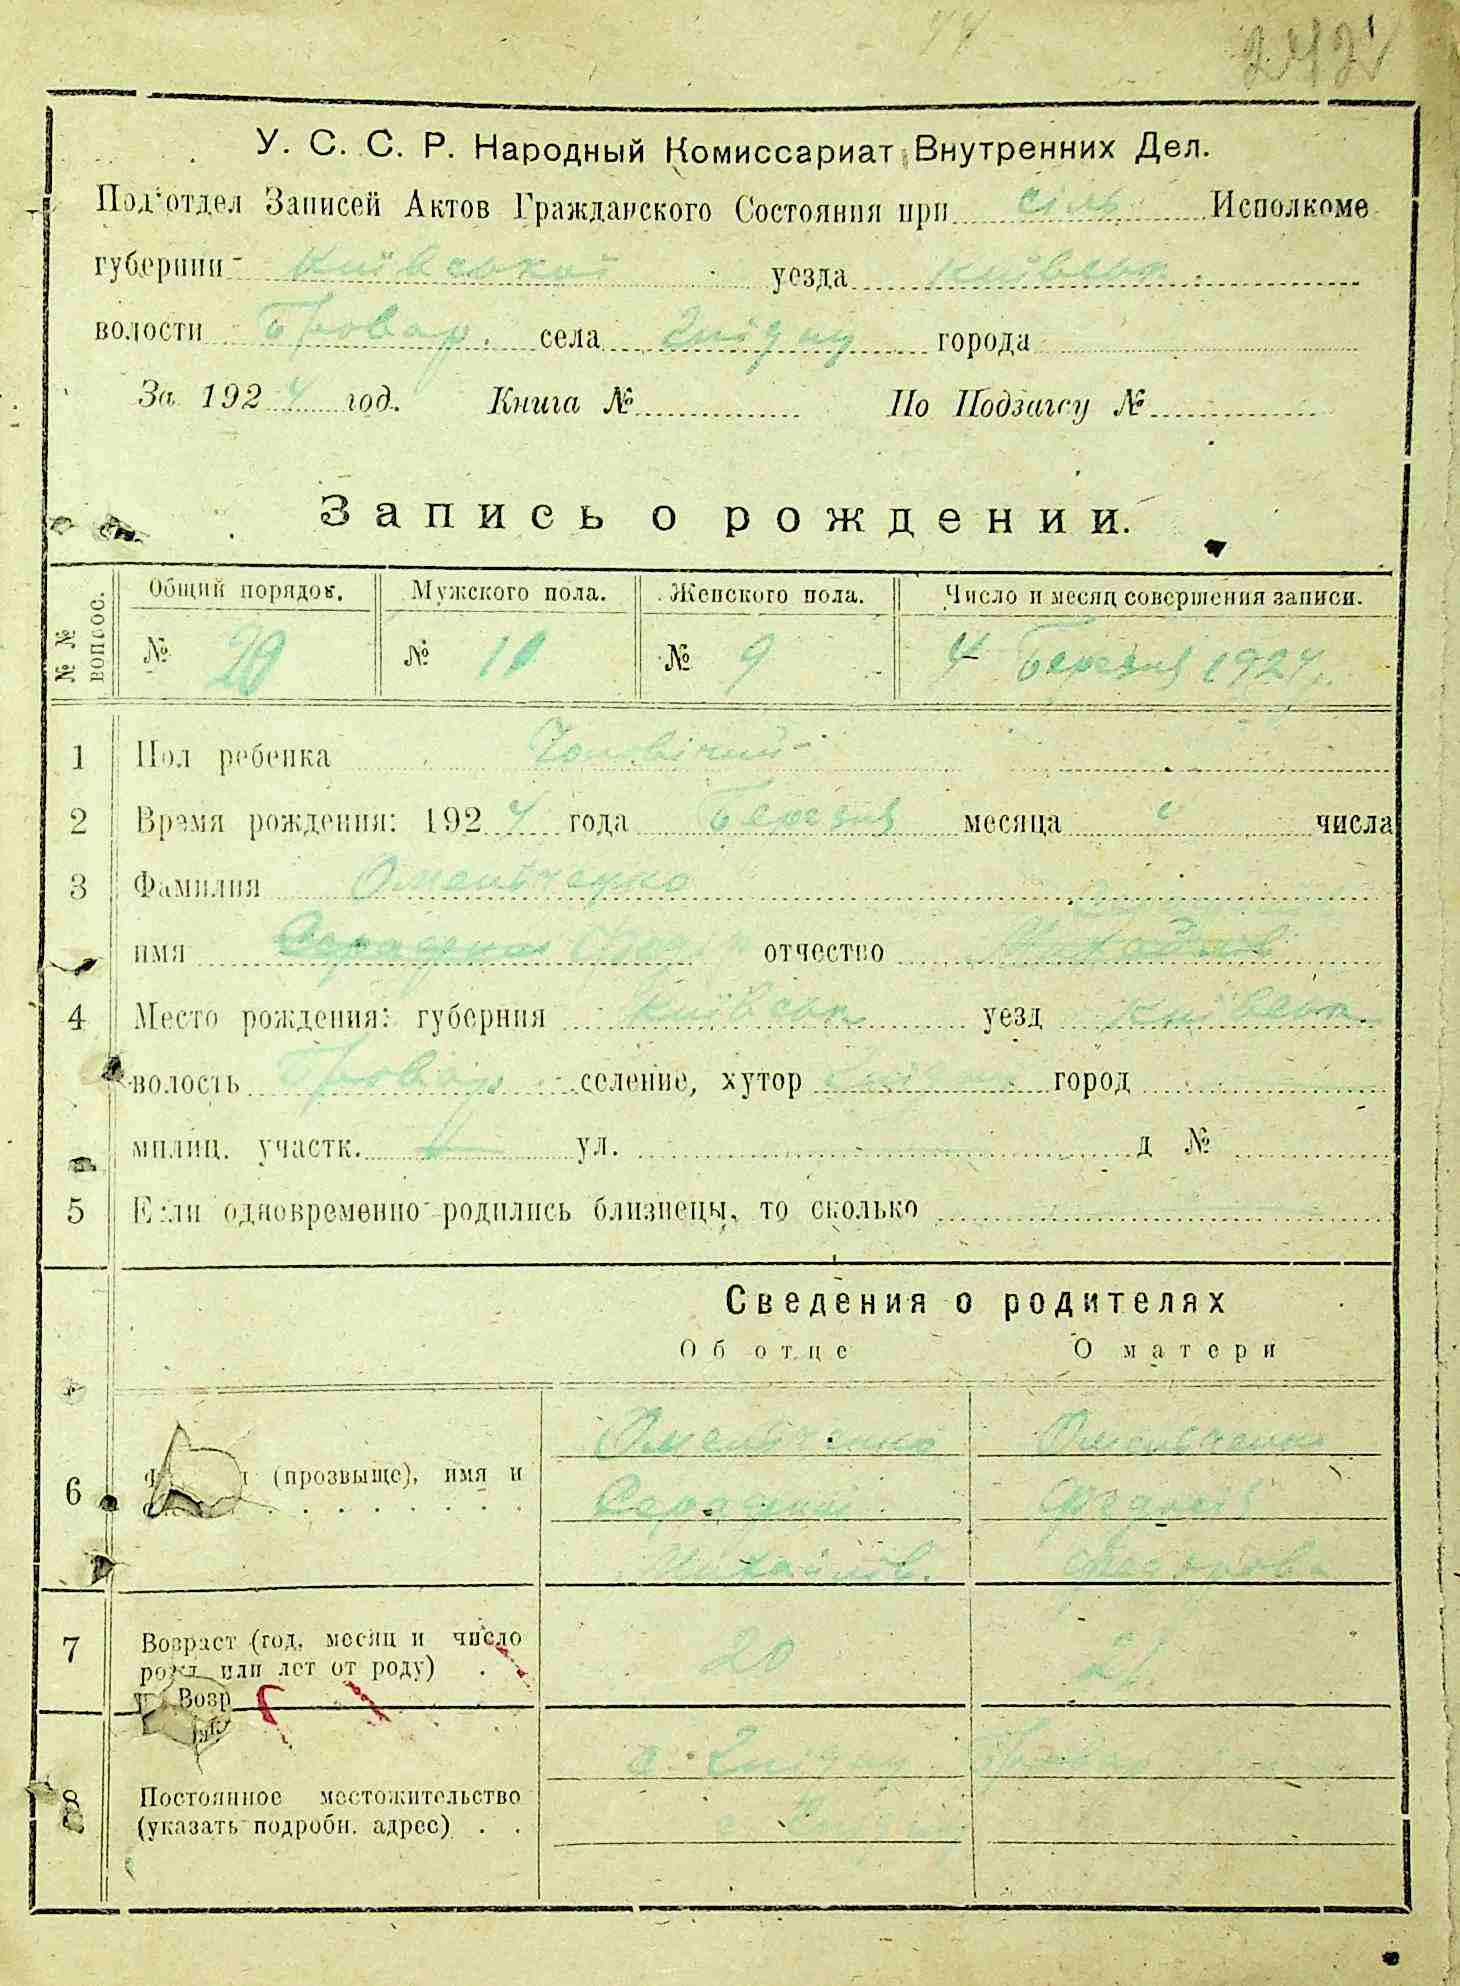 242
У. С. С. Р. Народный Комиссариат Внутренних Дел.
Под'отдел Записей Актов Гражданского Состояния при сіль Исполкоме
губернии Київської уезда Київськ.
волости Бровар. села Гнідин города
За 1924 год. Книга № По Подзагсу №
Запись о рождении.
№ № вопрос. Общий порядок. Мужского пола. Женского пола. Число и месяц совершения записи.
№ 20 № 10 № 9 4 Березня 1924
1 Пол ребенка Чоловічий
2 Время рождения: 1924 года Березня месяца числа
3 Фамилия Омельченко
имя отчество
4 Место рождения: губерния Київськ уезд Київськ.
волость Бровар селение, хутор Гнідин город
милиц. участк. ул. д №
5 Если одновременно родились близнецы, то сколько
Сведения о родителях
Об отце О матери
Омельченко Омельченко
6 (прозвыще), имя и
Федосія
Михайлов. Федорова
7 Возраст (год, месяц и число 20 21
рожд. или лет от роду) .
Возр
с. Гнідин Бровар
8 Постоянное местожительство
(указать подробн. адрес) . .